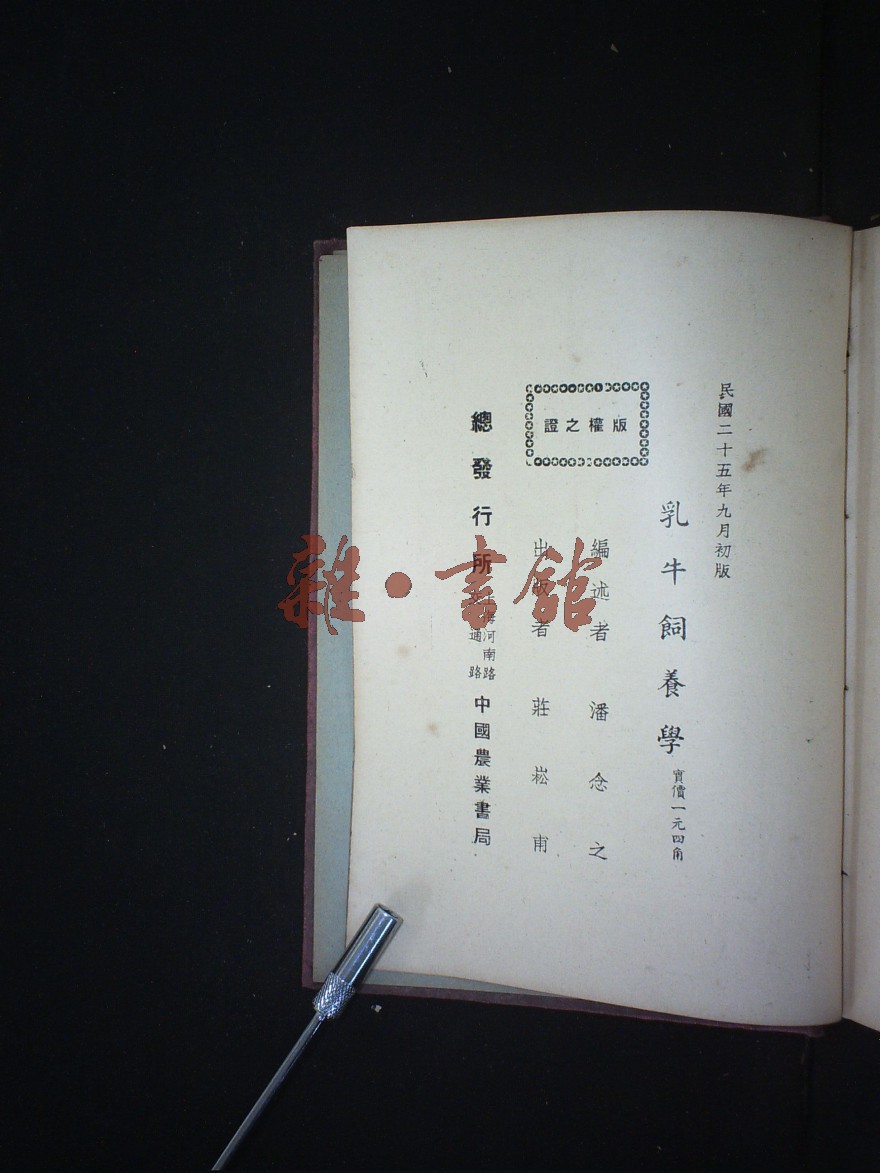 民國二十五年九月初版
乳牛飼養學
實價一元四角
版權之證
編述者 潘念之
出版者 莊崧甫
總發行所
海河南路
通路
中國農業書局
雜·書館